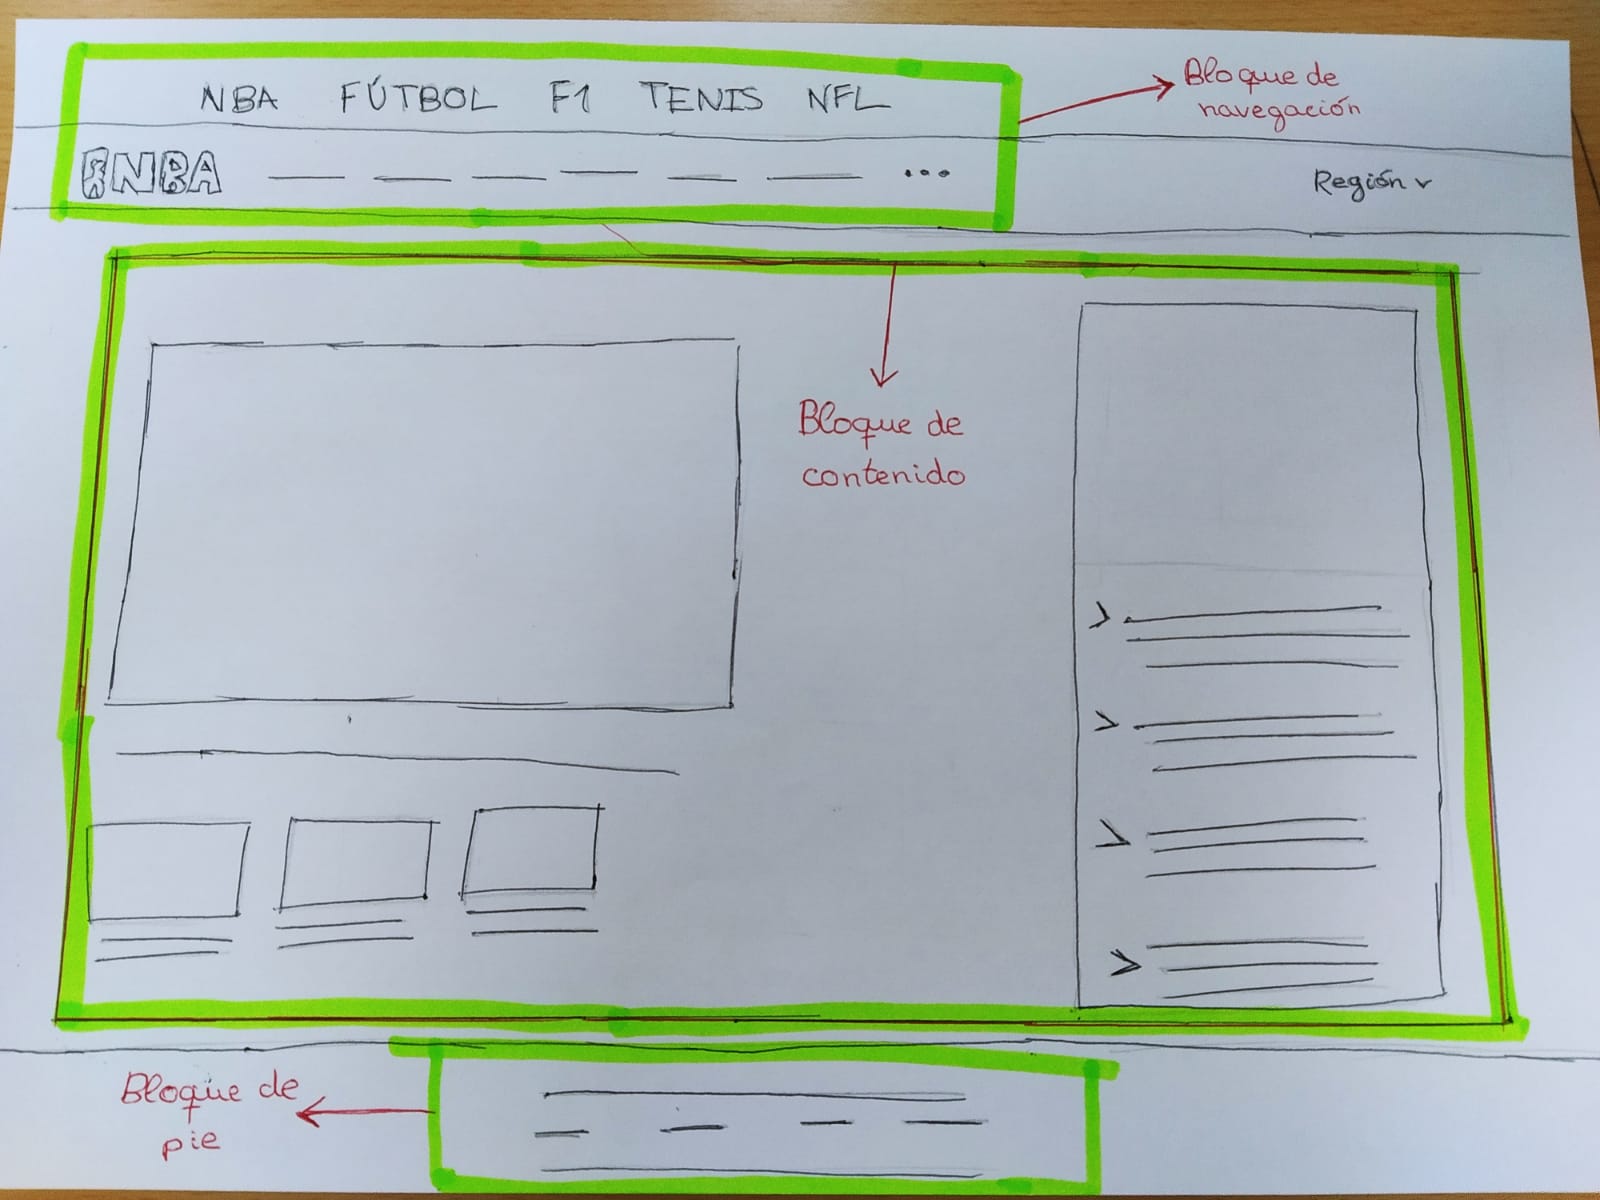 NBA FÚTBOL F1 TENIS NFL
Bloque de
navegación
NBA ...
Región
Bloque de
contenido
Bloque de
pie